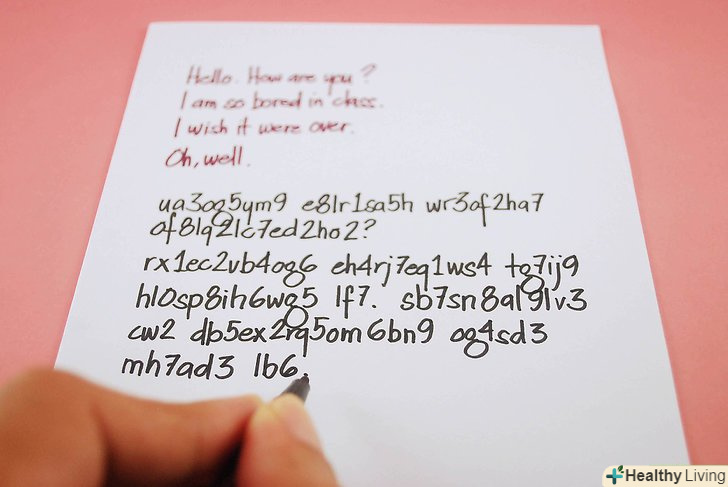 Hello. How are you?
I am so bored in class.
I wish it were over.
Oh, well.
ua3og5ym9 e8lr1sa5h wr3of2ha7
of8lq2lc7ed2ho2?
rx1ec2vb4og6 eh4rj7eq1ws4 tg7ij9
hl0sp8ih6wg5 lf7. sb7sn8al9lv3
cw2 db5ex2rq5om6bn9 og4sd3
mh7ad3 lb6.
Healthy Living